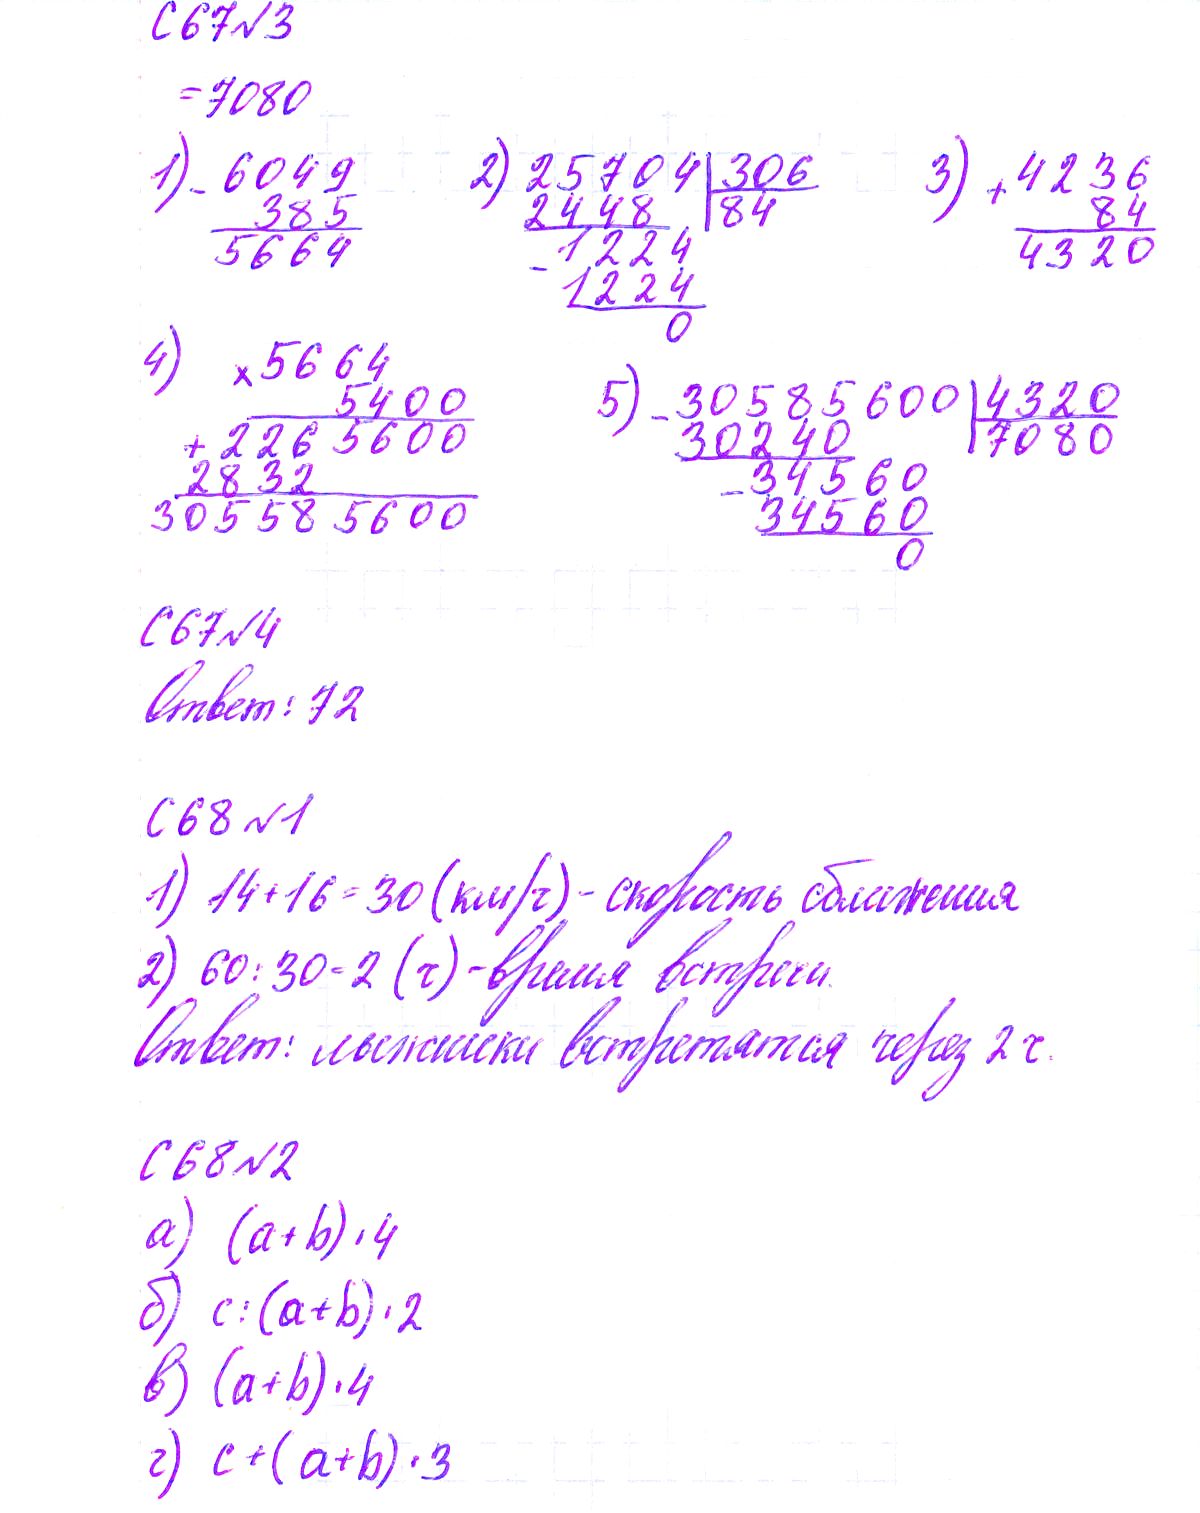 С67№3
=7080
1) - 6049 2) 25704 | 306 3) + 4236
385 2448 | 84 84
5664 - 1224 4320
1224
0
4) × 5664
5400 5) - 30585600 | 4320
+ 2265600 30240 | 7080
2832 - 34560
305585600 34560
0
С67№4
Ответ: 72
С68№1
1) 14+16=30(км/ч)-скорость сближения
2) 60:30=2 (ч)-время встречи.
Ответ: лыжники встретятся через 2 ч.
С68№2
а) (a+b)·4
б) c:(a+b)·2
в) (a+b)·4
г) c+(a+b)·3